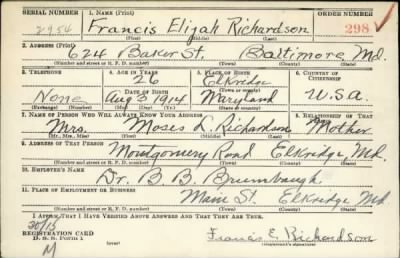 SERIAL NUMBER 1. NAME (Print) ORDER NUMBER
2954 Francis Elijah Richardson 298
(First) (Middle) (Last)
2. ADDRESS (Print)
624 Baker St. Baltimore Md.
(Number and street or R. F. D. number) (Town) (County) (State)
3. TELEPHONE 4. AGE IN YEARS 5. PLACE OF BIRTH 6. COUNTRY OF CITIZENSHIP
26 Elkridge
None DATE OF BIRTH (Town or county)
Aug 3 1914 Maryland U.S.A.
(Exchange) (Number) (Mo.) (Day) (Yr.) (State or country)
7. NAME OF PERSON WHO WILL ALWAYS KNOW YOUR ADDRESS 8. RELATIONSHIP OF THAT PERSON
Mrs. Moses Richardson Mother
(Mr., Mrs., Miss) (First) (Middle) (Last)
9. ADDRESS OF THAT PERSON
Montgomery Road Elkridge, Md.
(Number and street or R. F. D. number) (Town) (County) (State)
10. EMPLOYER'S NAME
Dr. B. B. Brumbaugh
11. PLACE OF EMPLOYMENT OR BUSINESS
Main St. Elkridge Md
(Number and street or R. F. D. number) (Town) (County) (State)
I AFFIRM THAT I HAVE VERIFIED ABOVE ANSWERS AND THAT THEY ARE TRUE.
REGISTRATION CARD
D. S. S. Form 1 Francis E. Richardson
M (Registrant's signature)